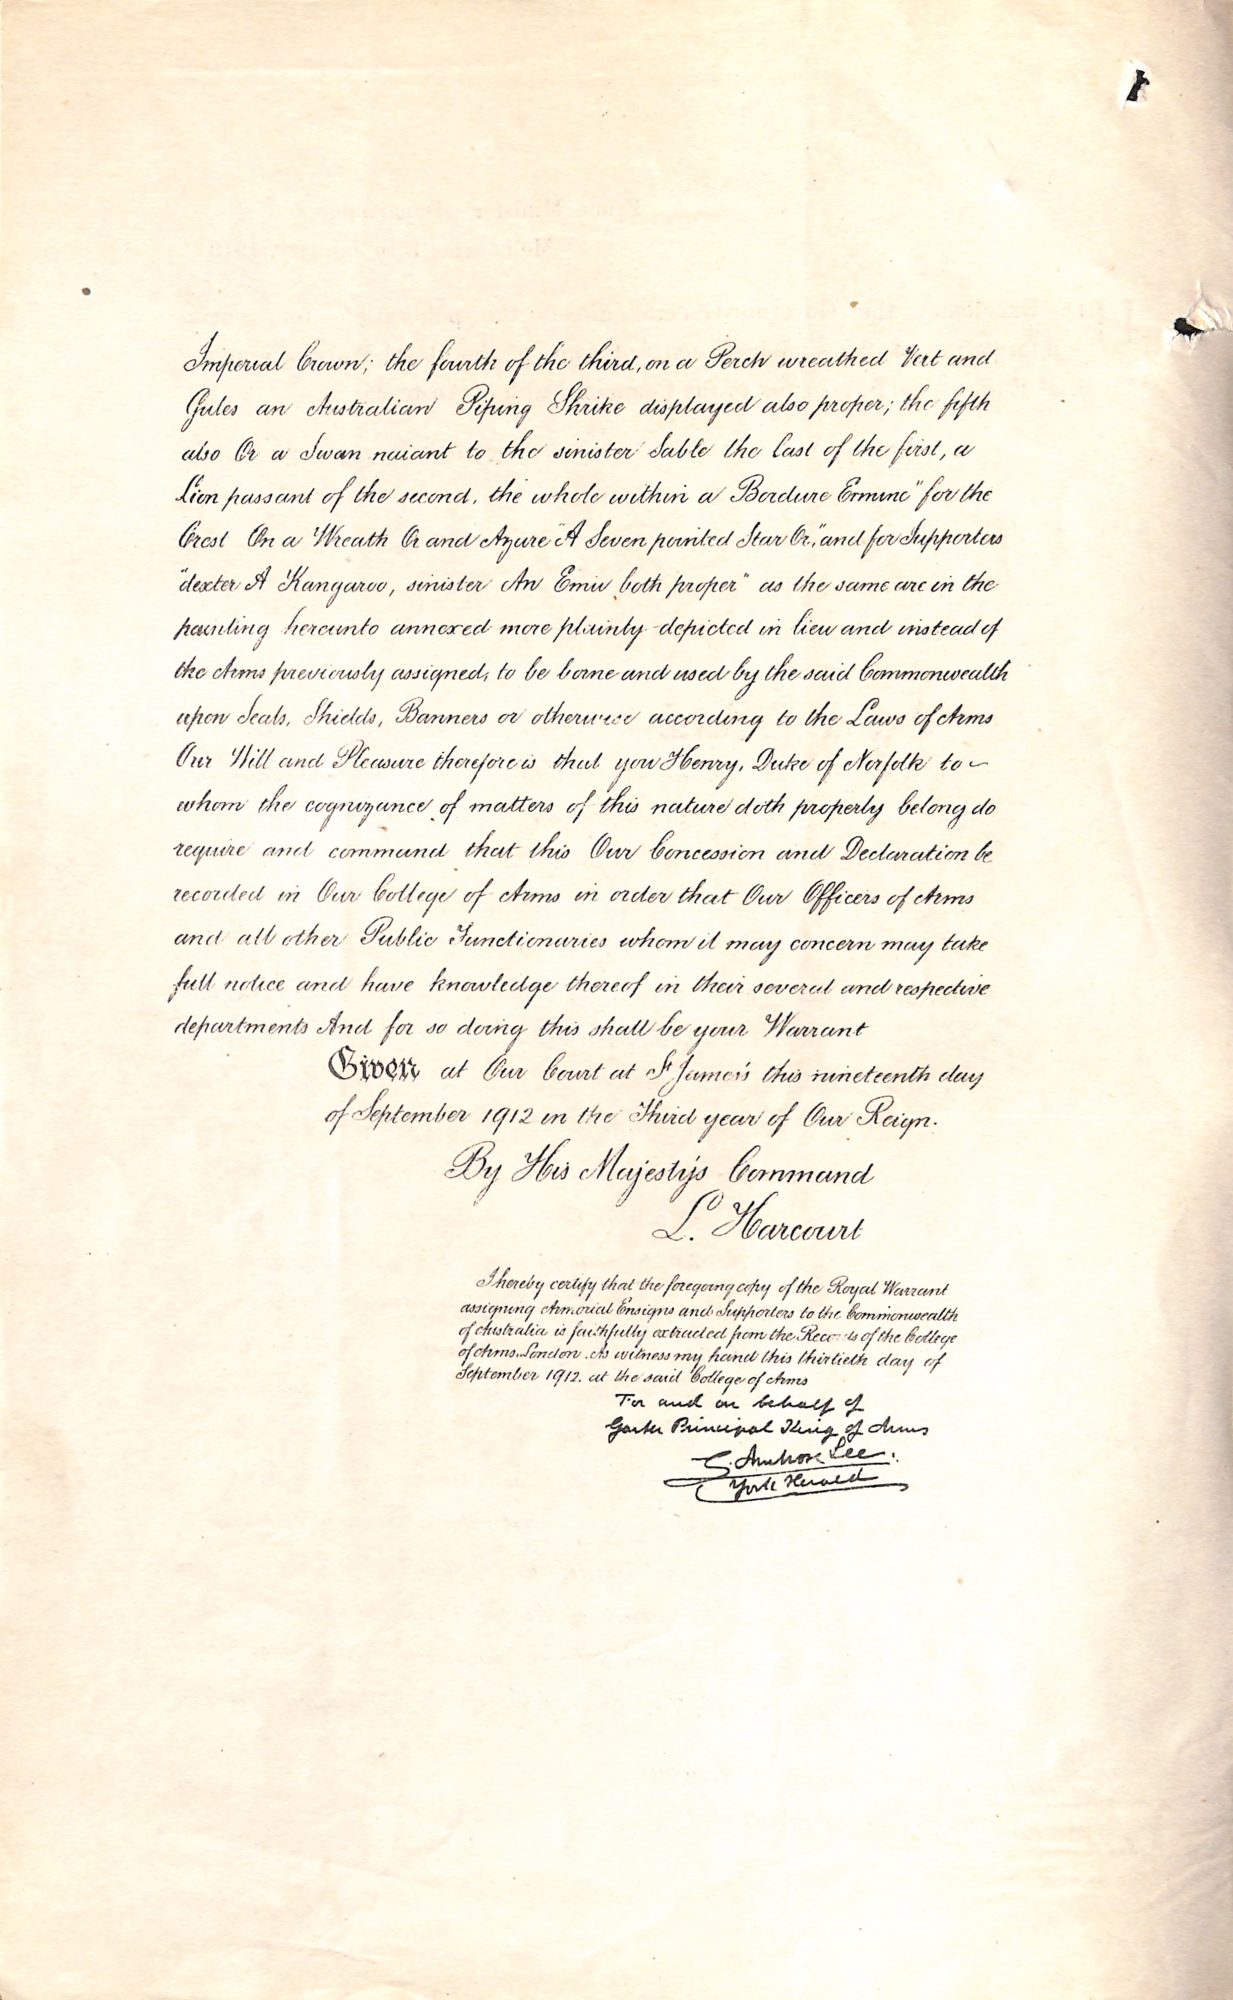 Imperial Crown; the fourth of the third, on a Perch wreathed Vert and
Gules an Australian Piping Shrike displayed also proper; the fifth
also Or a Swan naiant to the sinister Sable the last of the first, a
Lion passant of the second, the whole within a Bordure Ermine" for the
Crest On a Wreath Or and Azure "A Seven pointed Star Or," and for Supporters
"dexter A Kangaroo, sinister An Emu both proper" as the same are in the
painting hereunto annexed more plainly depicted in lieu and instead of
the Arms previously assigned, to be borne and used by the said Commonwealth
upon Seals, Shields, Banners or otherwise according to the Laws of Arms
Our Will and Pleasure therefore is that you Henry, Duke of Norfolk to ~
whom the cognizance of matters of this nature doth properly belong do
require and command that this Our Concession and Declaration be
recorded in Our College of Arms in order that Our Officers of Arms
and all other Public Functionaries whom it may concern may take
full notice and have knowledge thereof in their several and respective
departments And for so doing this shall be your Warrant
Given at Our Court at St James's this nineteenth day
of September 1912 in the Third year of Our Reign.
By His Majesty's Command
L. Harcourt
I hereby certify that the foregoing copy of the Royal Warrant
assigning Armorial Ensigns and Supporters to the Commonwealth
of Australia is faithfully extracted from the Records of the College
of Arms. London. As witness my hand this thirtieth day of
September 1912. at the said College of Arms
For and on behalf of
Garter Principal King of Arms
G. Ambrose Lee.
York Herald